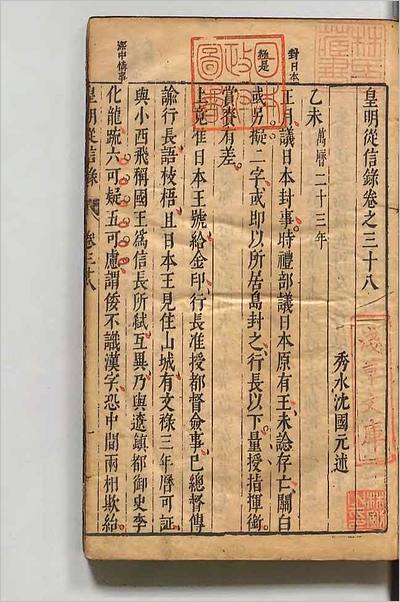 皇明從信錄卷之三十八
秀水沈國元述
乙未萬曆二十三年
正月議日本封事時禮部議日本原有王未諗存亡關白
或另擬二字或即以所居島封之行長以下量授指揮銜
賞賚有差
上見准日本王號給金印行長准授都督僉事已總督傳
諭行長語枝梧且日本王見住山城有文祿三年曆可証
與小西飛稱國王為信長所弒互異乃與遼鎮都御史李
化龍疏六可疑五可慮謂倭不識漢字恐中間兩相欺紿
皇明從信錄 卷三十八
封日本
日本
政府
圖書
淺草文庫